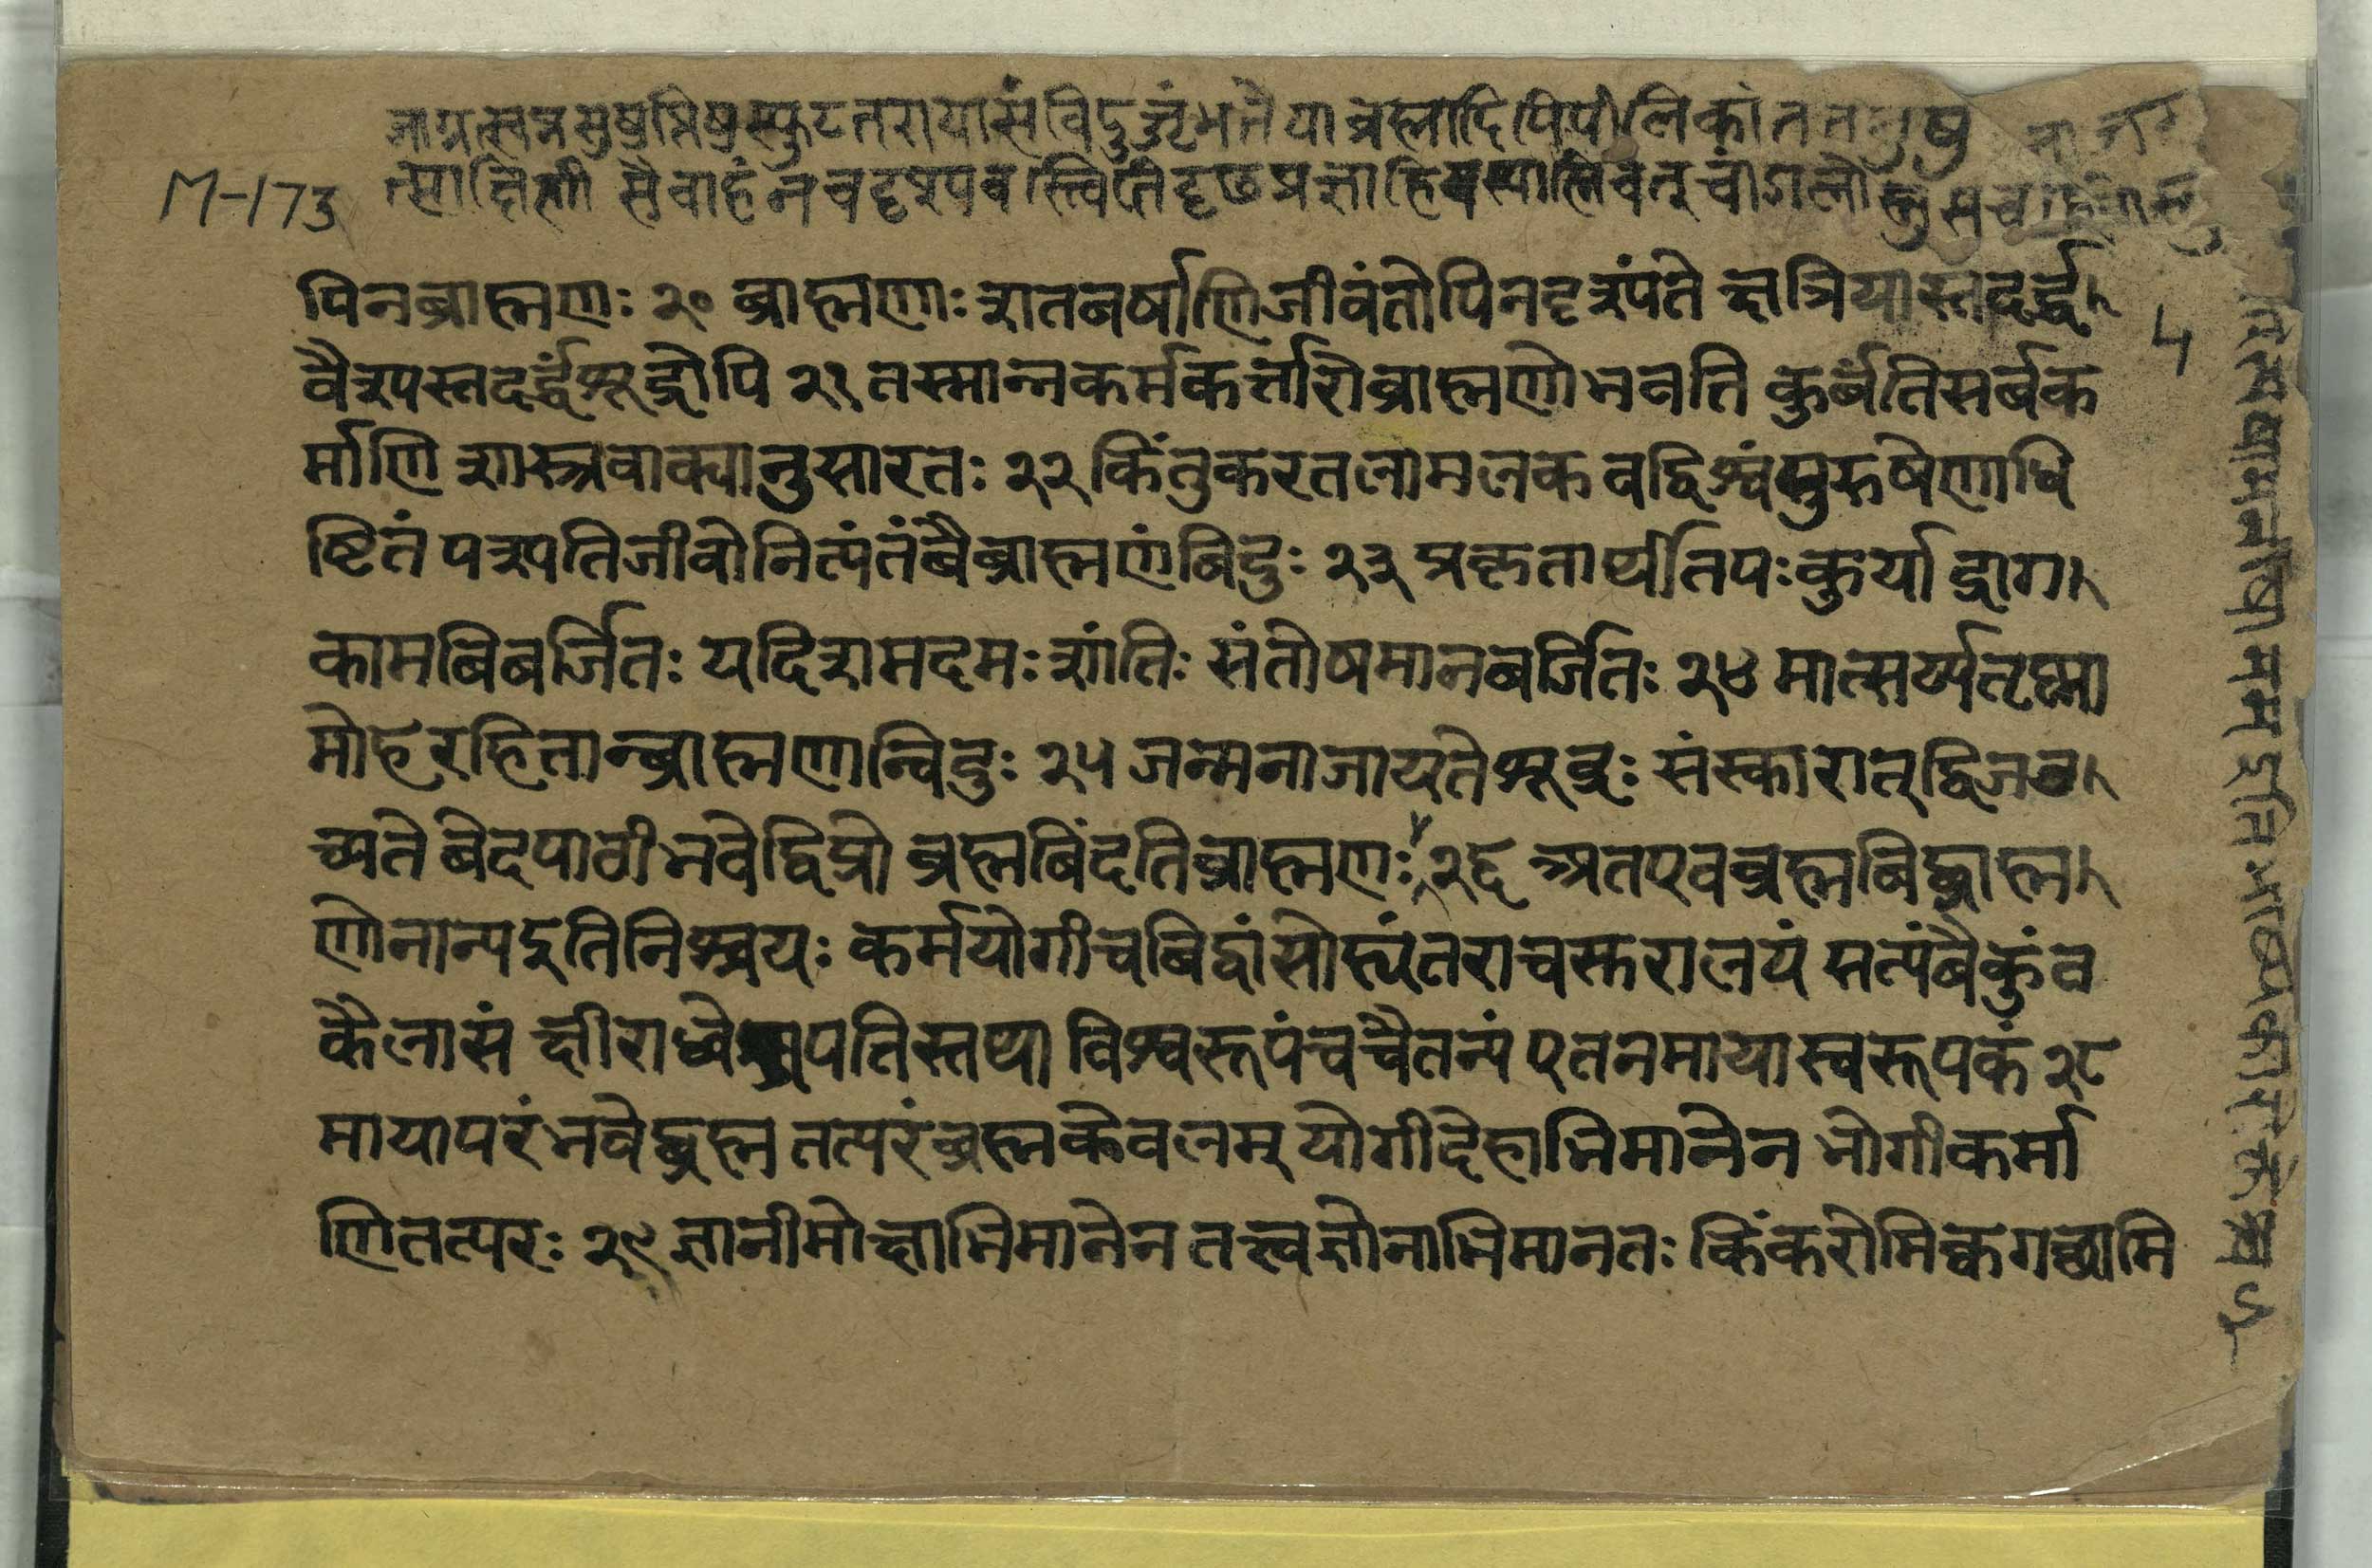 जाग्रत्स्वप्नसुषुप्तिषुस्फुटतरायासंविदुज्जृंभतेयाब्रह्मादिपिपीलिकांततनुषु
M-173
त्साक्षिणी सैवाहंनचदृश्यवस्त्वितिदृढप्रज्ञाहियस्यास्तिचेत् चांडालोस्तु
पिनब्राह्मणः २० ब्राह्मणाः शतबर्षाणिजीवंतोपिनदृश्यंते क्षत्रियास्तदर्द्ध
5
वैश्यस्तदर्द्धंशूद्रोपि २१ तस्मान्नकर्मकर्त्तारोब्राह्मणोभवति कुर्बंतिसर्बक
र्माणि शास्त्रवाक्यानुसारतः २२ किंतुकरतलामलकवद्विश्वंपुरुषेणाधि
ष्टितं पश्यतिजीवोनित्यंतंबैब्राह्मणंबिदुः २३ प्रकृतार्थीतपःकुर्या द्राग
कामबिबर्जितः यदिशमदमः शांतिः संतोषमानबर्जितः २४ मात्सर्य्यतृष्णा
मोहरहितान्ब्राह्मणान्विदुः २५ जन्मनाजायतेशूद्रः संस्कारात् द्विजउ
च्यते बेदपाठीभवेद्विप्रो ब्रह्मबिंदतिब्राह्मणः २६ अतएवब्रह्मबिद्ब्राह्म
णोनान्यइतिनिश्चयः कर्मयोगीचबिद्वांसोस्त्यंतराचसुरालयं सत्यंबैकुंठ
कैलासं क्षीराब्धे पतिस्तथा विश्वरूपंचचैतन्यं एतनमायास्वरूपकं २८
मायापरंभवेद्ब्रह्म तत्परंब्रह्मकेवलम् योगीदेहाभिमानेन भोगीकर्मा
णितत्परः २९ ज्ञानीमोक्षाभिमानेन तत्त्वज्ञोनाभिमानतः किंकरोमिक्वगछामि